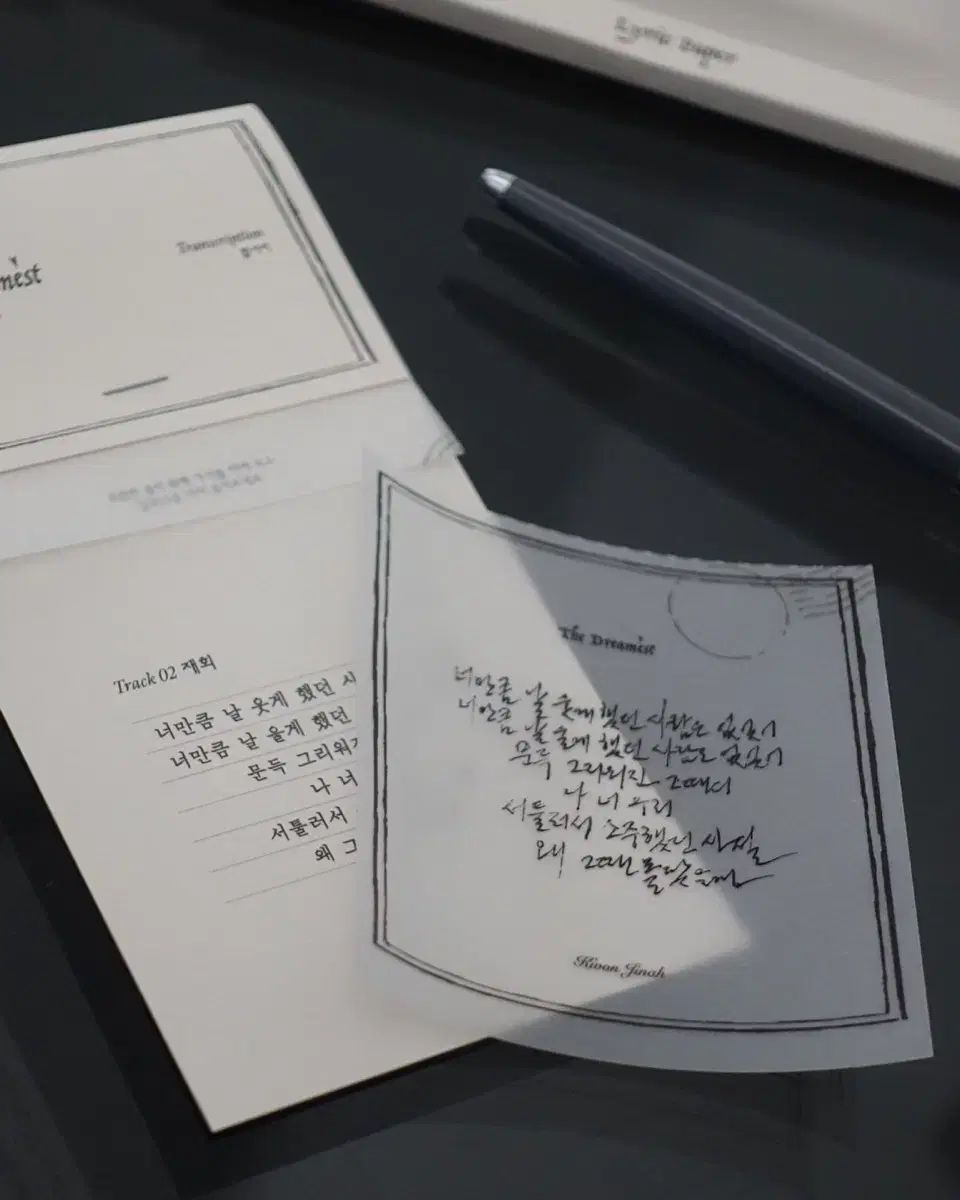 Lyric Paper
mest
Transcription
필사지
Track 02 재회
너만큼 날 웃게 했던 사
너만큼 날 울게 했던
문득 그리워
나 너
서툴러서
왜 그
The Dreamest
너만큼 날 웃게 했던 사람은 없었어
너만큼 날 울게 했던 사람도 없었어
문득 그리워진 그때의
나 너 우리
서툴러서 소중했던 사실
왜 그땐 몰랐을까
Kwon Jinah